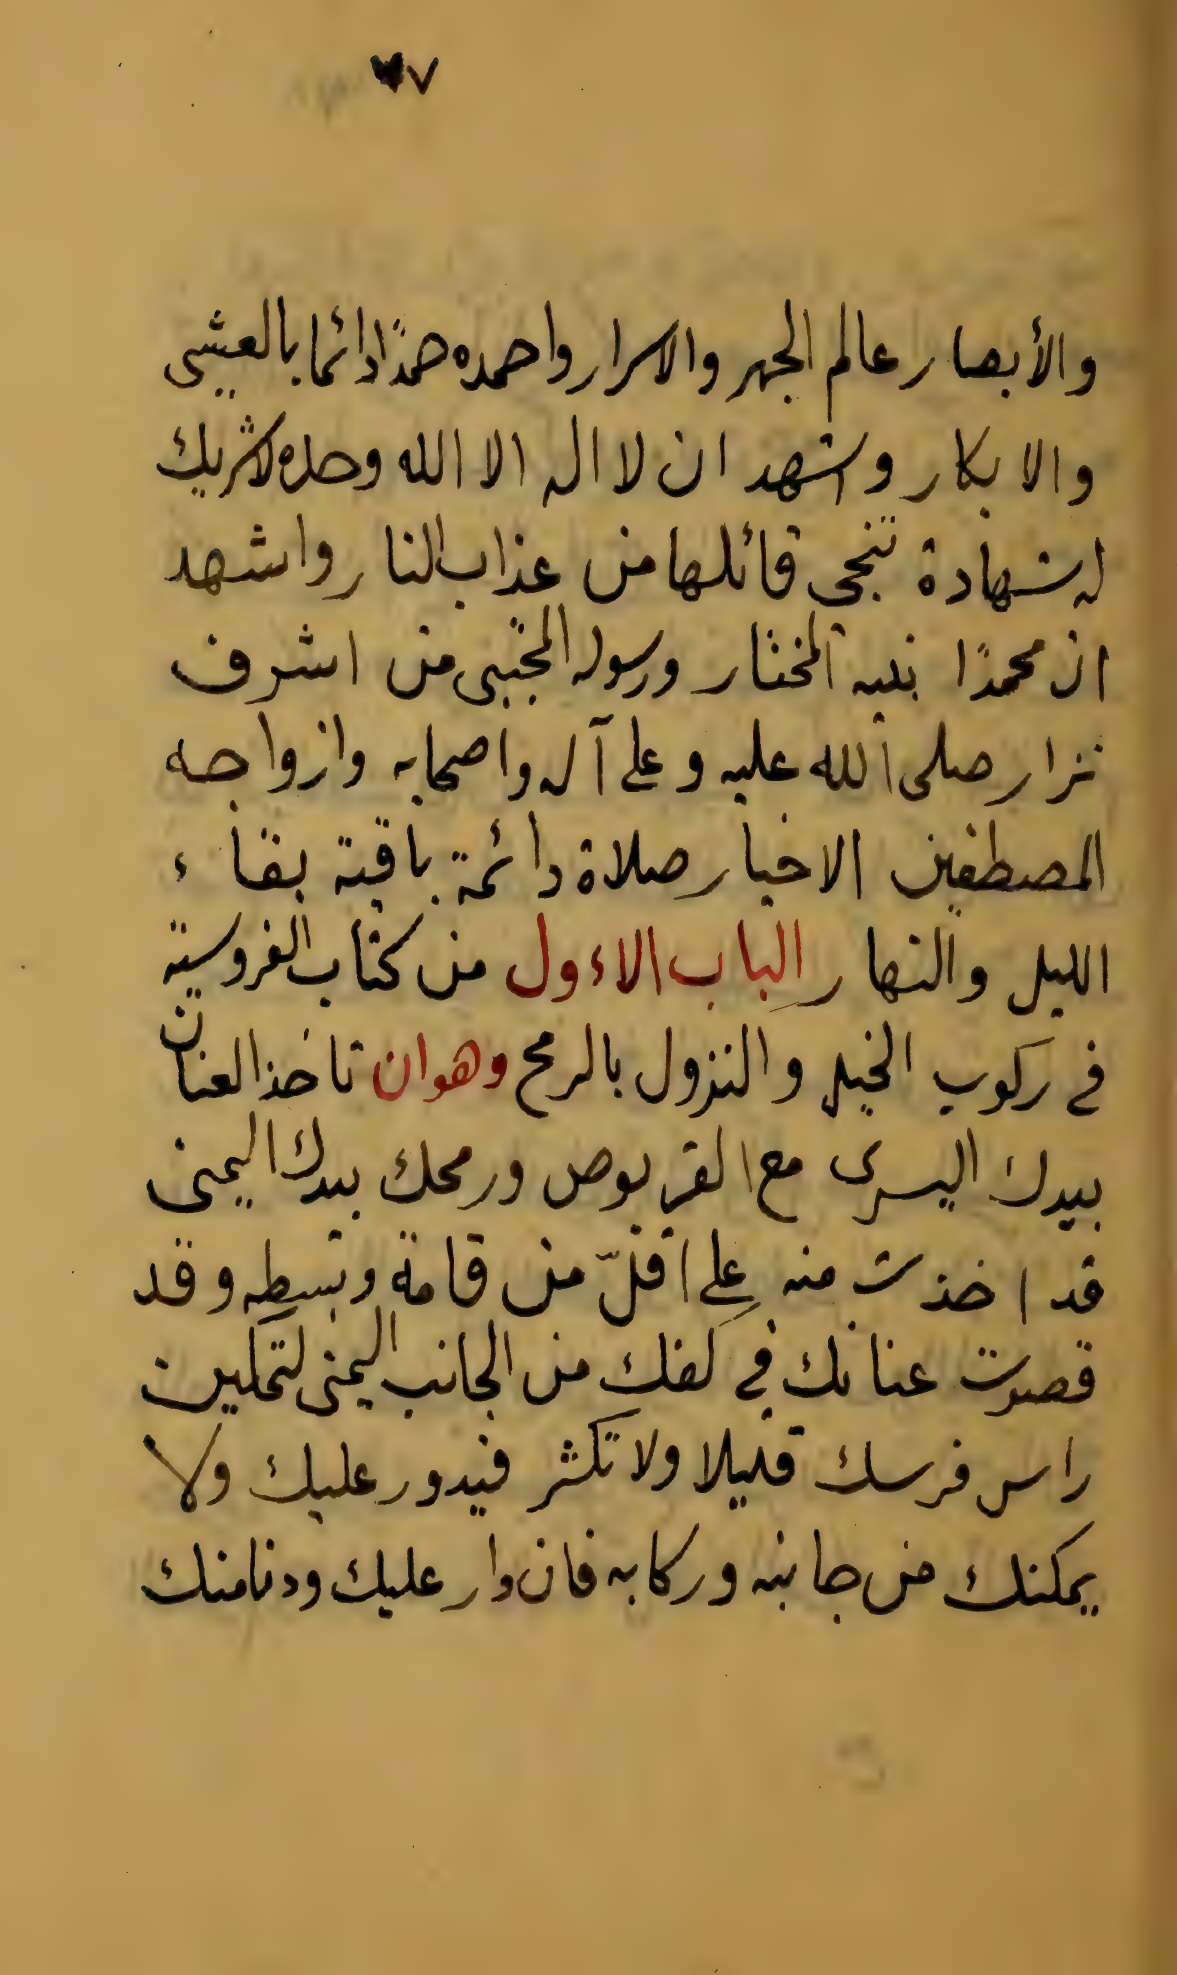 والأبصار عالم الجهر والاسرار واحمده حمدًا دائما بالعشيي
والابكار واشهد ان لا اله الا الله وحده لاشريك
له شهادة تنجى قائلها من عذاب النار واشهد
ان محمدًا نبيه المختار ورسوله المجتبى من اشرف
نزار صلى الله عليه وعلى آله واصحابه وازواجه
المصطفين الاخيار صلاة دائمة باقية بقاء
الليل والنهار الباب الاءول من كتاب الفروسية
فى ركوب الخيل والنزول بالرمح وهوان تاخذ العنان
بيدك اليسرى مع القربوص ورمحك بيدك اليمنى
قد اخذت منه على اقلّ من قامة وتبسطه وقد
قصرت عنانك فى كفك من الجانب اليمنى لتملين
راس فرسك قليلا ولا تكثر فيدور عليك ولا
يمكنك من جانبه وركابه فان دار عليك ودنا منك